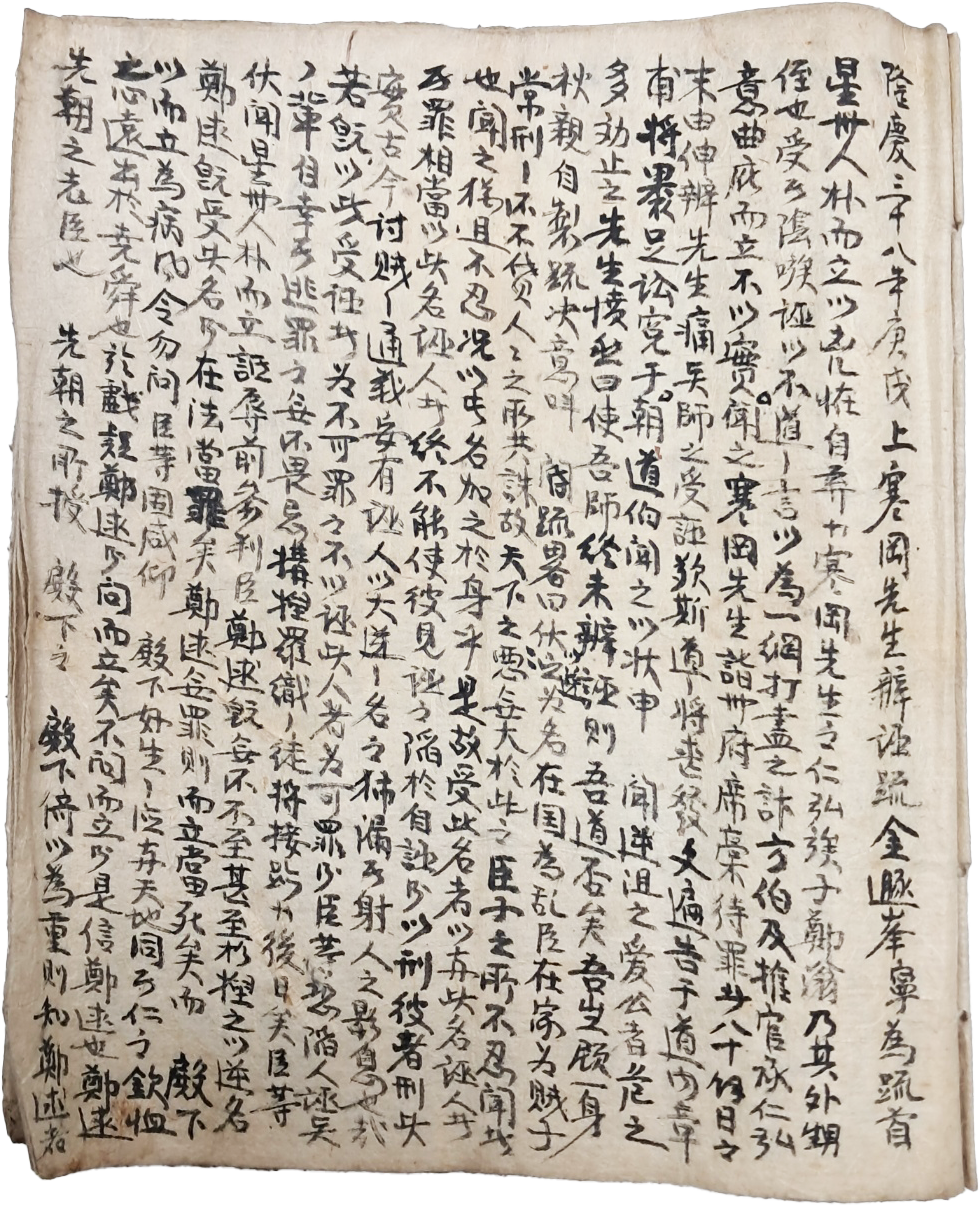 隆慶三十八年庚戌上寒岡先生辨誣疏金避峯寧為疏首
星卅人朴而立以老怪自弃於寒岡先生之仁弘族子鄭滃乃其外甥
侄也受而陰嗾誣以不道之言以為一網打盡之計方伯及推官承仁弘
意曲庇而立不以實聞之寒岡先生詣卅府席藁待罪者八十餘日之
末由伸辨先生痛吴師之受誣欲斯道之將喪發文遍告于道內章
甫將裹足訟寃于朝道伯聞之以狀申聞逆沮之愛公者危之
多効止之先生憤然曰使吾師終未辨誣則吾道否矣吾豈顧一身
秋親自製疏決意叫閽疏畧曰伏以逆之為名在国為乱臣在家为賊子
常刑之不貸人之所共誅故天下之惡無大於此之臣子之所不忍聞者
也聞之猶且不忍况以此名加之於身乎是故受此名者以与此名誣人者
其罪相當以此名誣人者終不能使彼見誣之陷於自誣所以刑彼者刑此
實古今討賊之通義安有誣人以大逆之名之拂漏而射人之影息也哉
若旣以此受誣者為不可罪之不以誣此人者為可罪則臣等恐陷人誣吴
之輩自幸其逃罪之無不畏忌搆捏羅織之徒將接跡於後日矣臣等
伏聞星卅人朴而立詬辱前參判臣鄭逑旣無不不至甚至於捏之以逆名
鄭逑旣受此名則在法當罪矣鄭逑無罪則而立當死矣而殿下
以而立為病風令勿问臣等固咸仰殿下好生之心与天地同而仁之欽恤
之心遠出於堯舜也於戲疑鄭逑則问而立矣不问而立則是信鄭逑也鄭逑
先朝之老臣也先朝之所授殿下之殿下倚以為重則知鄭逑者